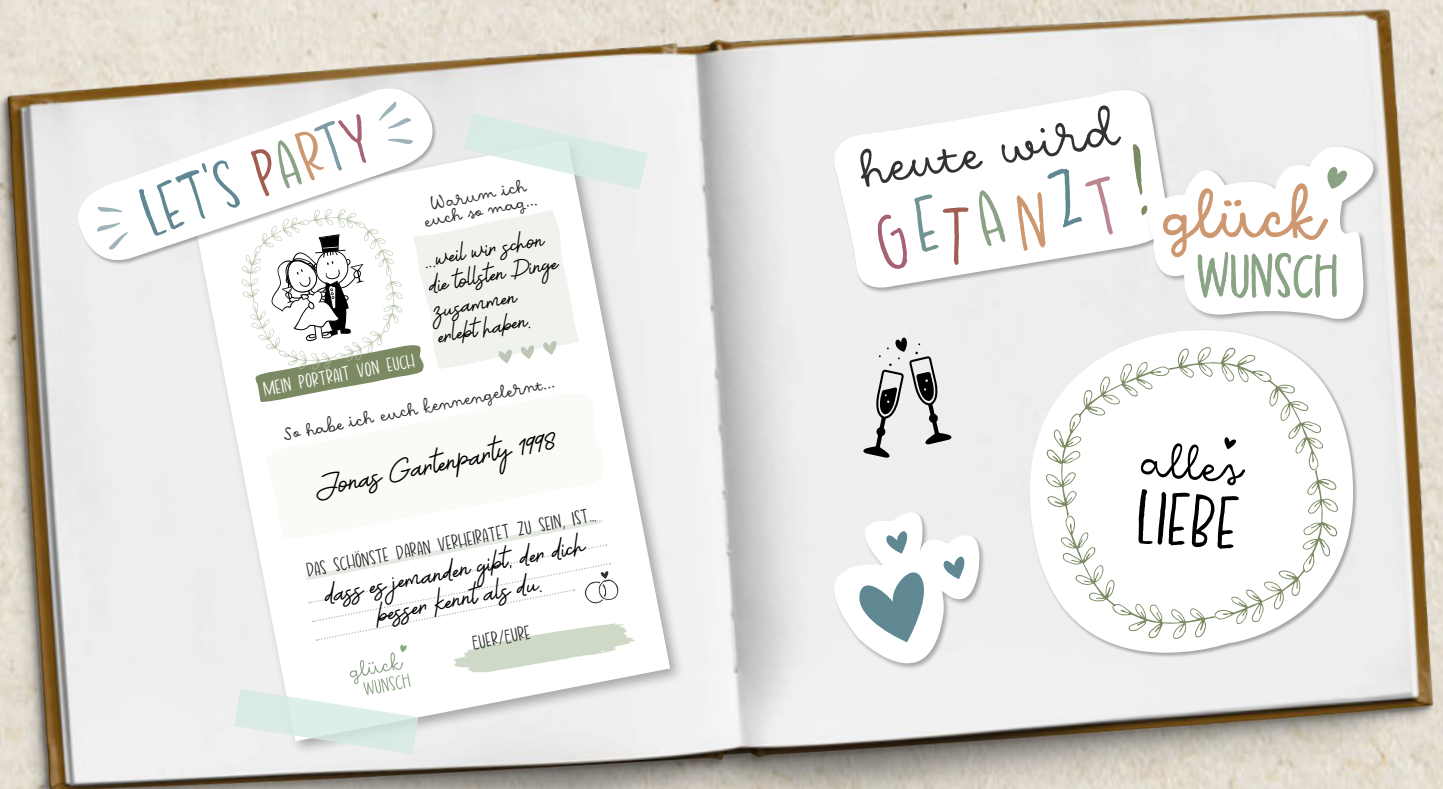 LET'S PARTY
Warum ich
euch so mag...
...weil wir schon
die tollsten Dinge
zusammen
erlebt haben.
MEIN PORTRAIT VON EUCH
So habe ich euch kennengelernt...
Jonas Gartenparty 1998
DAS SCHÖNSTE DARAN VERHEIRATET ZU SEIN, IST...
dass es jemanden gibt, der dich
besser kennt als du.
EUER/EURE
glück
WUNSCH
heute wird
GETANZT!
glück
WUNSCH
alles
LIEBE